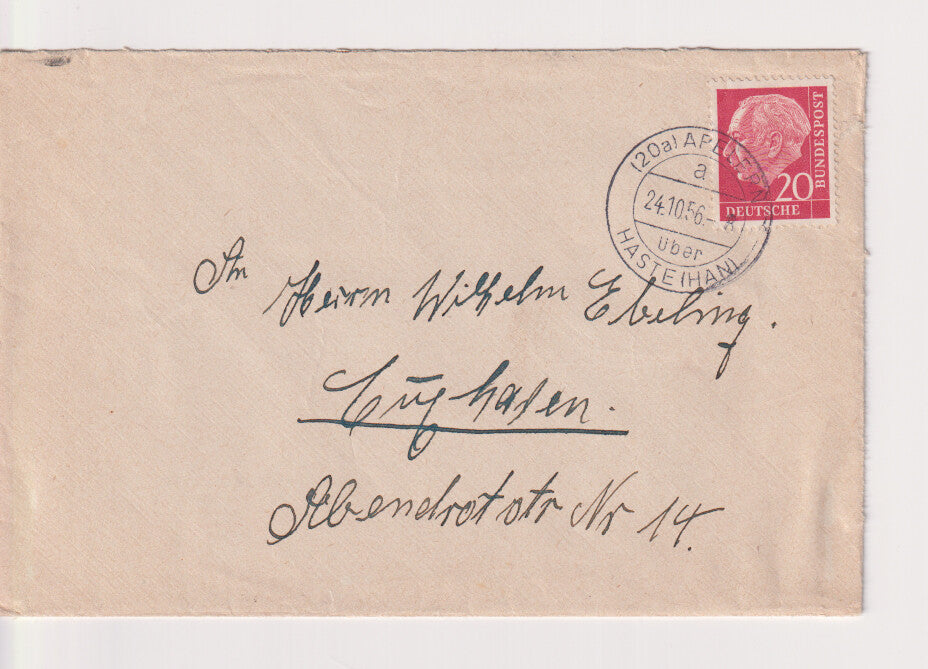 BUNDESPOST
20
DEUTSCHE
(20a) APELERN
a
24.10.56.-
über
HASTE (HAN)
An
Herrn Wilhelm Ebeling.
Cuxhaven.
Abendrotstr Nr 14.